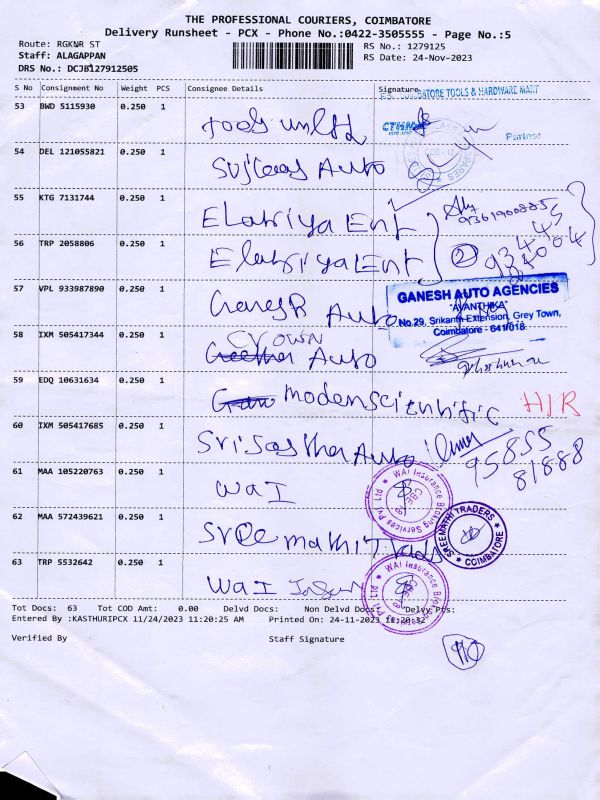 THE PROFESSIONAL COURIERS, COIMBATORE
Delivery Runsheet - PCX - Phone No.:0422-3505555 - Page No.:5
Route: RGKNR ST
RS No.: 1279125
Staff: ALAGAPPAN
RS Date: 24-Nov-2023
DRS No.: DCJB127912505
S No Consignment No Weight PCS Consignee Details Signature
COIMBATORE TOOLS & HARDWARE MART
53 BWD 5115930 0.250 1 Tools unltd
Partner
54 DEL 121055821 0.250 1 Auto
55 KTG 7131744 0.250 1 Elakiya Ent
56 TRP 2058806 0.250 1 Elakiya Ent
57 VPL 933987890 0.250 1 Ganesh Auto
GANESH AUTO AGENCIES
"AVANTHIKA"
No.29, Srikanth Extension, Grey Town,
Coimbatore - 641018.
CROWN
58 IXM 505417344 0.250 1 Auto
59 EDQ 10631634 0.250 1 modenscientific H/R
60 IXM 505417685 0.250 1 Sri Sastha Auto 95855
81888
61 MAA 105220763 0.250 1 WAI
WAI Insurance Broking Services Pvt Ltd
CBE
62 MAA 572439621 0.250 1 Sree mathi Trads
SREEMATHI TRADERS
COIMBATORE
63 TRP 5532642 0.250 1 WAI
WAI Insurance Broking Services Pvt Ltd
CBE
Tot Docs: 63 Tot COD Amt: 0.00 Delvd Docs: Non Delvd Docs: Delvy Pts:
Entered By :KASTHURIPCX 11/24/2023 11:20:25 AM Printed On: 24-11-2023 12:20:32
Verified By Staff Signature